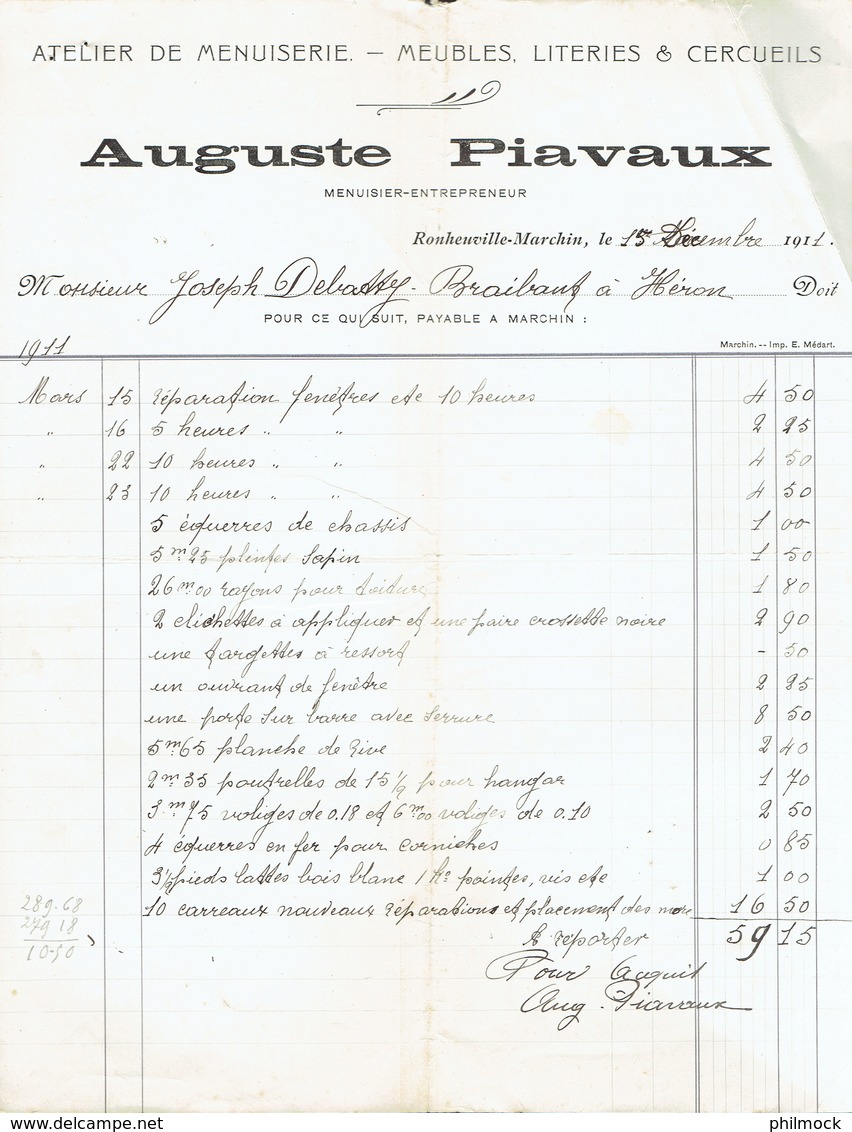 ATELIER DE MENUISERIE. — MEUBLES, LITERIES & CERCUEILS
Auguste Piavaux
MENUISIER-ENTREPRENEUR
Ronheuville-Marchin, le 15 Décembre 1911.
Monsieur Joseph Debatty-Braibant à Héron Doit
POUR CE QUI SUIT, PAYABLE A MARCHIN :
1911
Marchin. -- Imp. E. Médart.
Mars 15 réparation fenêtres etc 10 heures 4 50
" 16 5 heures " " 2 25
" 22 10 heures " " 4 50
" 23 10 heures " " 4 50
5 équerres de chassis 1 00
5m25 plintes Sapin 1 50
26m00 rayons pour toiture 1 80
2 clichettes à appliquer et une paire crossette noire 2 90
une targettes à ressort - 50
un ouvrant de fenêtre 2 25
une porte sur barre avec serrure 8 50
5m65 planche de rive 2 40
2m35 poutrelles de 15 1/2 pour hangar 1 70
3m75 voliges de 0.18 et 6m00 voliges de 0.10 2 50
4 équerres en fer pour corniches 0 85
3 1/2 pieds lattes bois blanc 1 ko pointes, vis etc 1 00
10 carreaux nouveaux réparations et placement des 16 50
289.68
279 18
10-50
A reporter 59 15
Pour Acquit
Aug. Piavaux
philmock